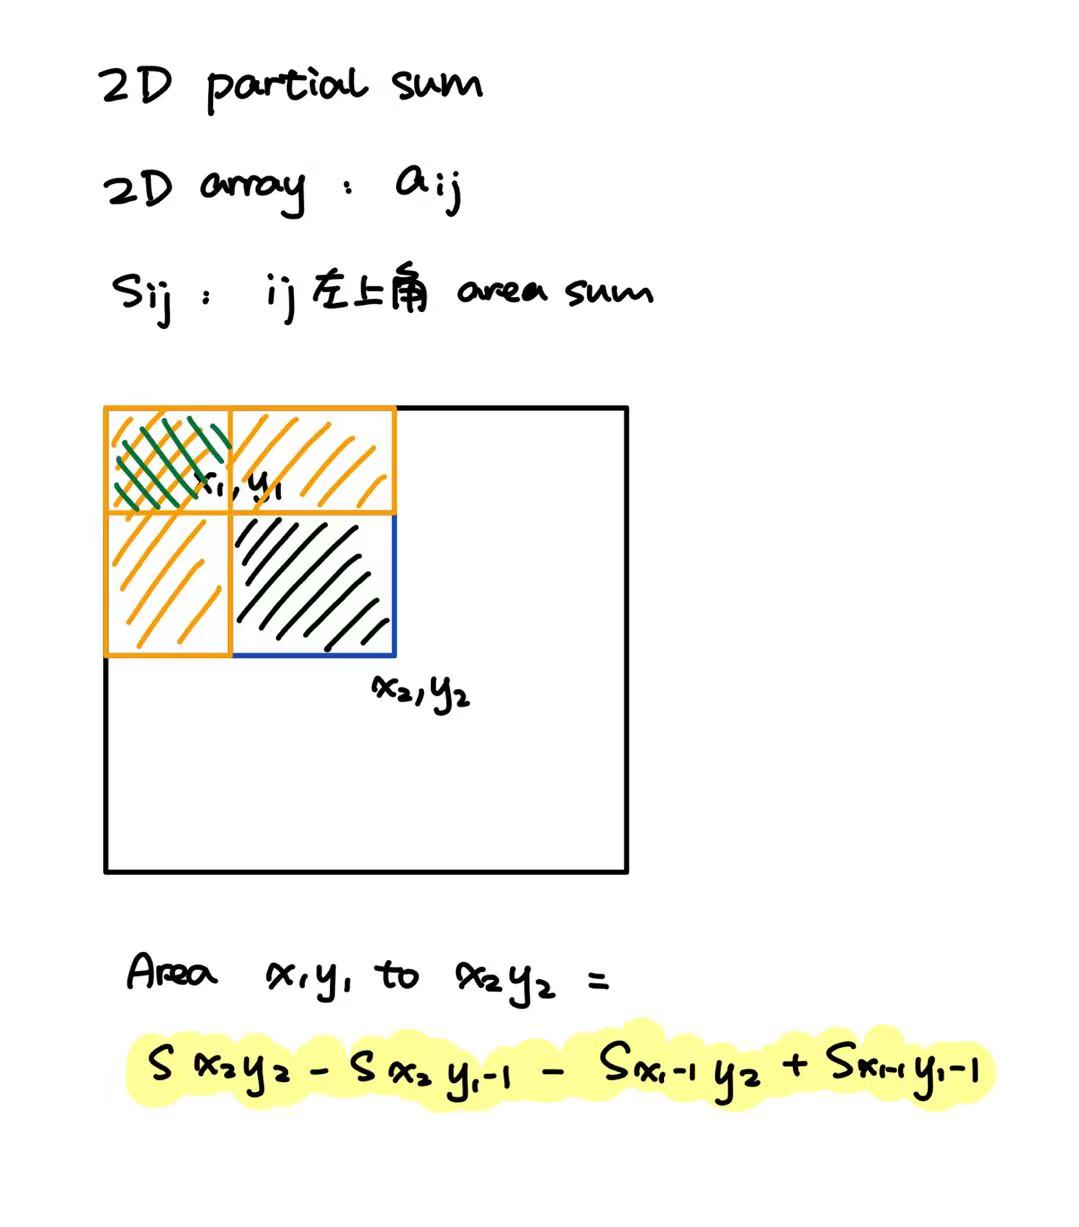 2D partial sum
2D array : aij
Sij : ij 左上角 area sum
x1, y1
x2, y2
Area x1y1 to x2y2 =
S x2y2 - S x2 y1-1 - Sx1-1 y2 + Sx1-1 y1-1